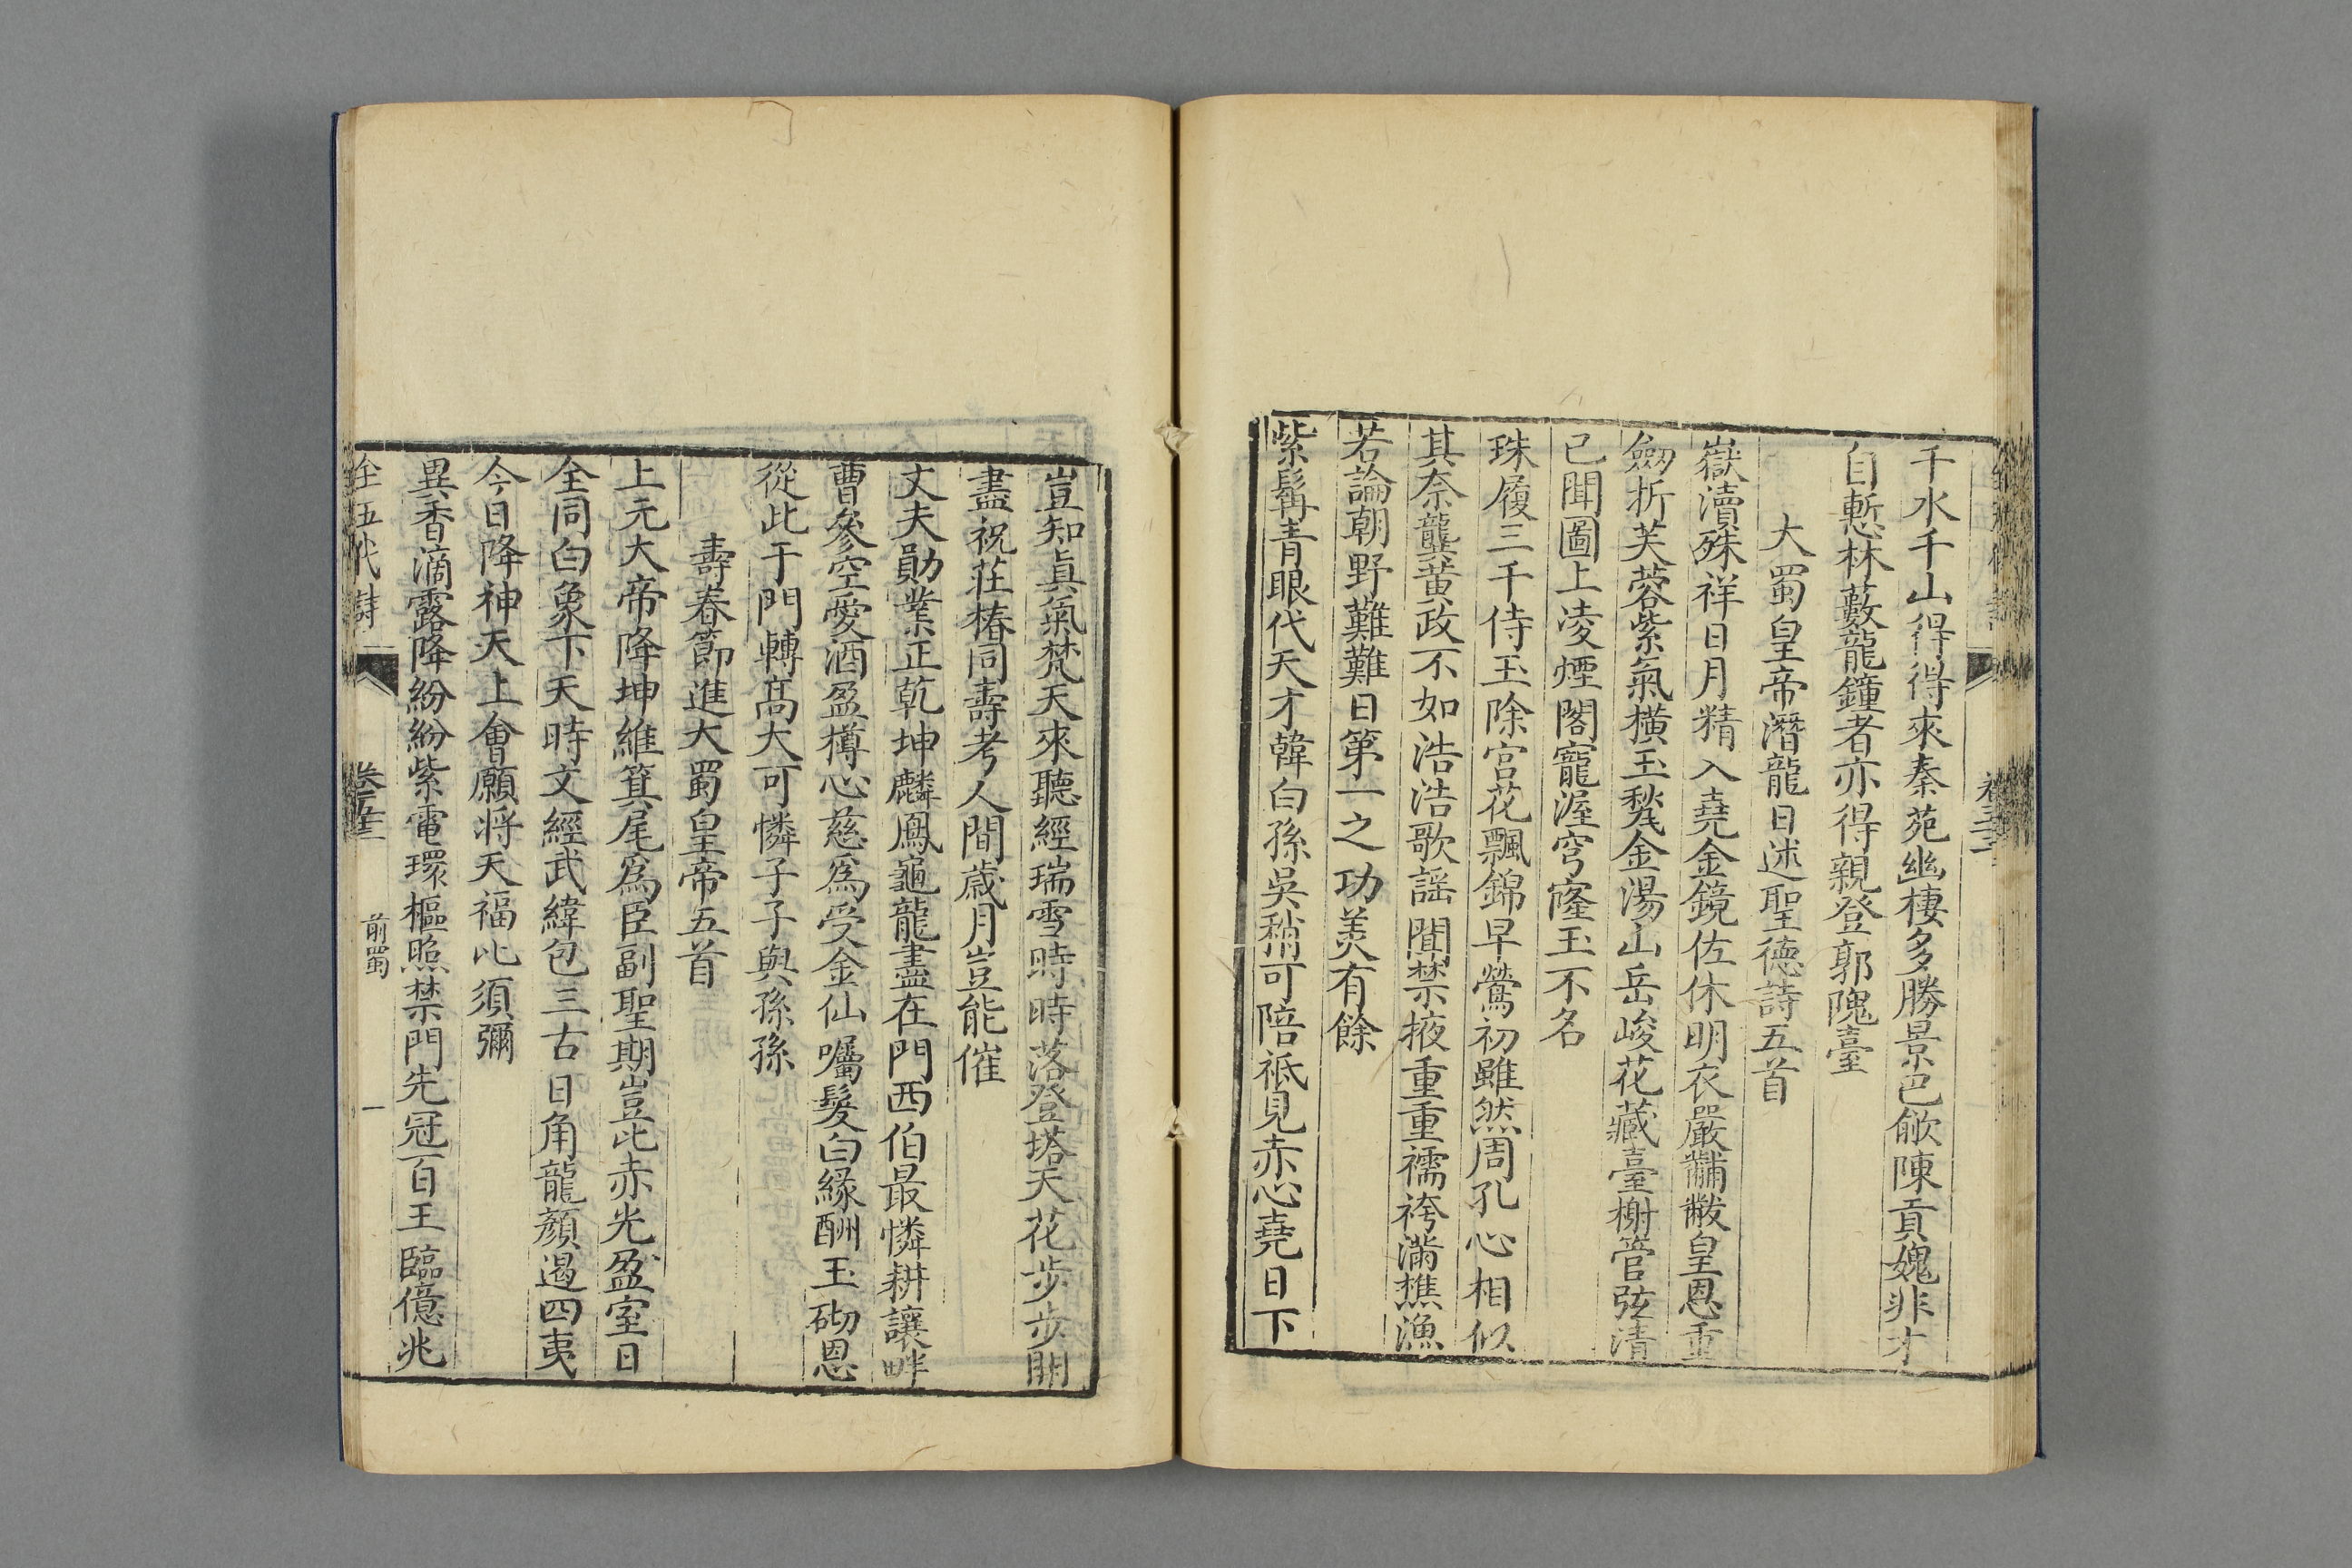 千水千山得得來秦苑幽棲多勝景巴歈陳貢媿非才
自慙林藪龍鐘者亦得親登郭隗臺
大蜀皇帝潛龍日述聖德詩五首
嶽瀆殊祥日月精入堯金鏡佐休明衣嚴黼黻皇恩重
劒折芙蓉紫氣橫玉甃金湯山岳峻花藏臺榭管弦清
已聞圖上凌煙閣寵渥穹窿玉不名
珠履三千侍玉除宮花飄錦早鶯初雖然周孔心相似
其奈龔黃政不如浩浩歌謠聞禁掖重重襦袴滿樵漁
若論朝野難難日第一之功羡有餘
紫髯青眼代天才韓白孫吳稍可陪祗見赤心堯日下
豈知眞氣梵天來聽經瑞雪時時落登塔天花步步開
盡祝莊椿同壽考人間歲月豈能催
丈夫勛業正乾坤麟鳳龜龍盡在門西伯最憐耕讓畔
曹參空愛酒盈樽心慈爲受金仙囑髮白緣酬玉砌恩
從此于門轉高大可憐子子與孫孫
壽春節進大蜀皇帝五首
上元大帝降坤維箕尾爲臣副聖期豈比赤光盈室日
全同白象下天時文經武緯包三古日角龍顏遏四夷
今日降神天上會願將天福比須彌
異香滴露降紛紛紫電環樞照禁門先冠百王臨億兆
全五代詩
前蜀
一